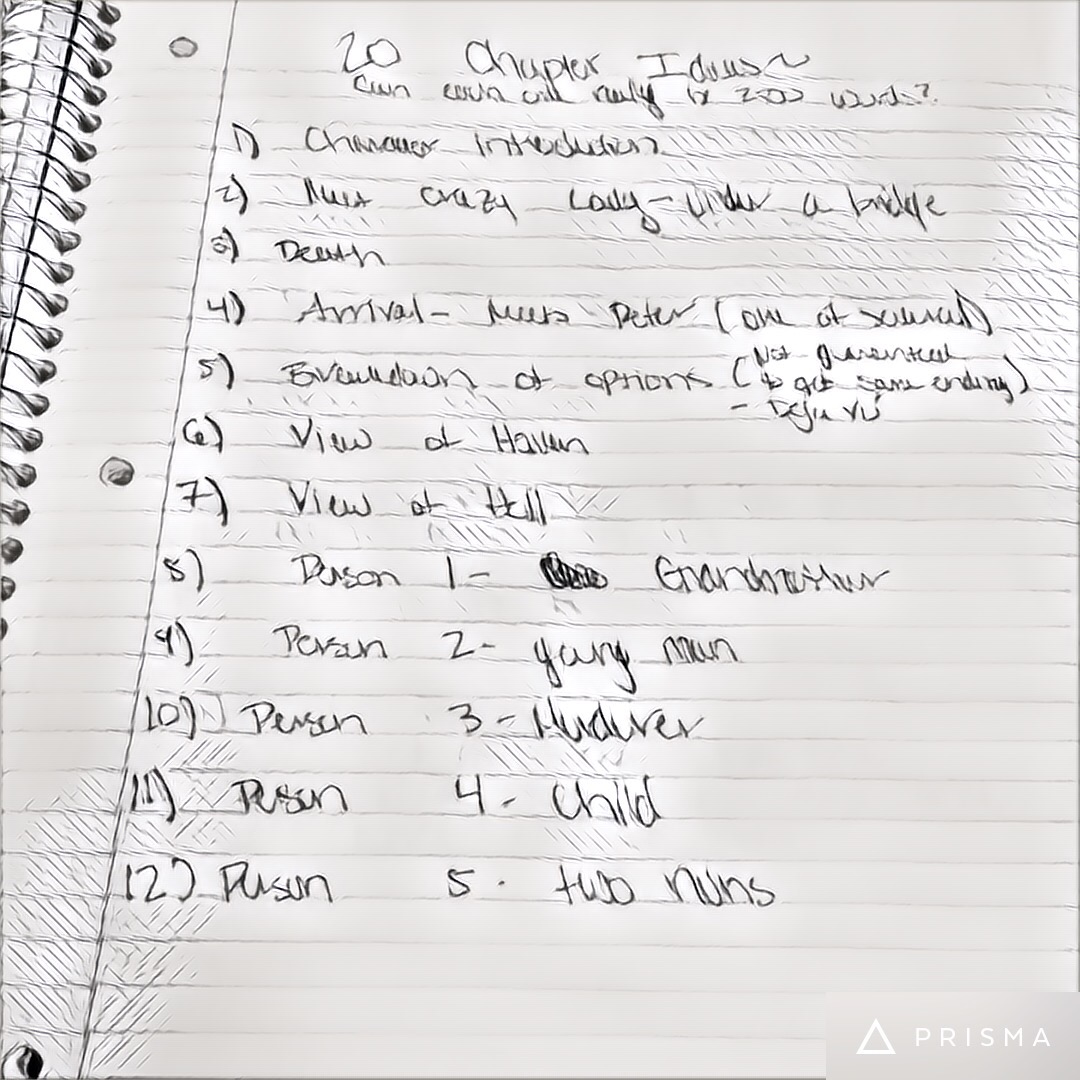 20 Chapter Ideas
Can each one really be 2500 words?
1) Character Introduction
2) Meet crazy lady - under a bridge
3) Death
4) Arrival - Meets Peter (one of several)
5) Breakdown of options (Not guaranteed
to get same ending)
- Deja Vu
6) View of Heaven
7) View of Hell
8) Person 1 - Grandmother
9) Person 2 - young man
10) Person 3 - Murderer
11) Person 4 - Child
12) Person 5 - two nuns
PRISMA